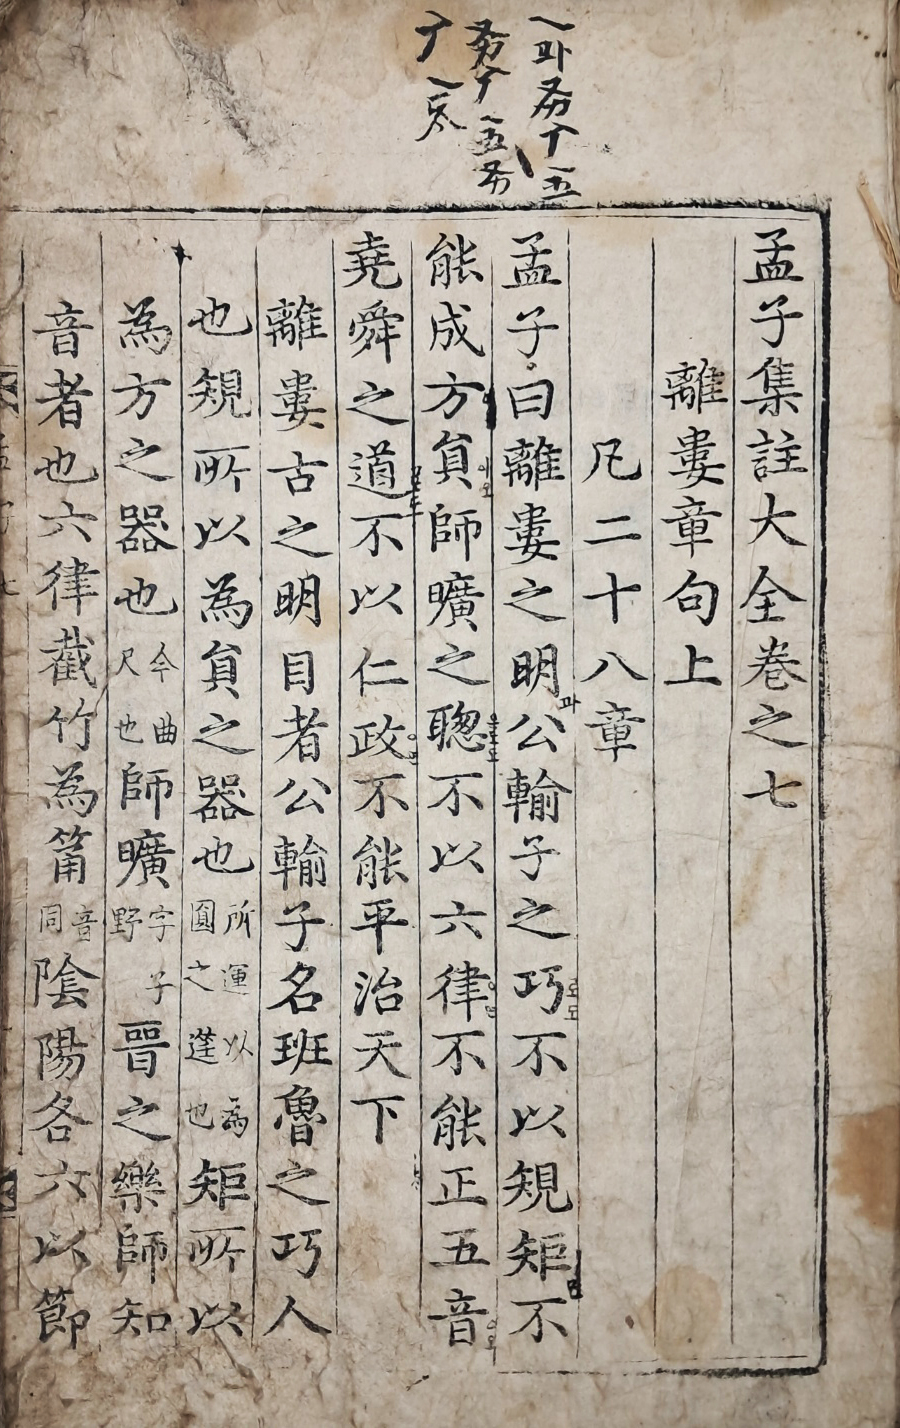 孟子集註大全卷之七
離婁章句上
凡二十八章
孟子曰離婁之明公輸子之巧不以規矩不
能成方員師曠之聰不以六律不能正五音
堯舜之道不以仁政不能平治天下
離婁古之明目者公輸子名班魯之巧人
也規所以為員之器也所運以為圓之蓬也矩所以
為方之器也今曲尺也師曠字子野晉之樂師知
音者也六律截竹為筩音同陰陽各六以節